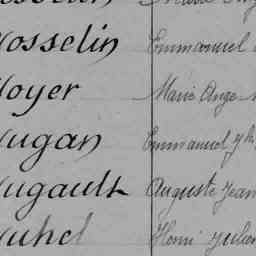 osselin Emmanuel
oyer Marie Ange
ugan Emmanuel
ugault Auguste Jean
uhel Henri Julien